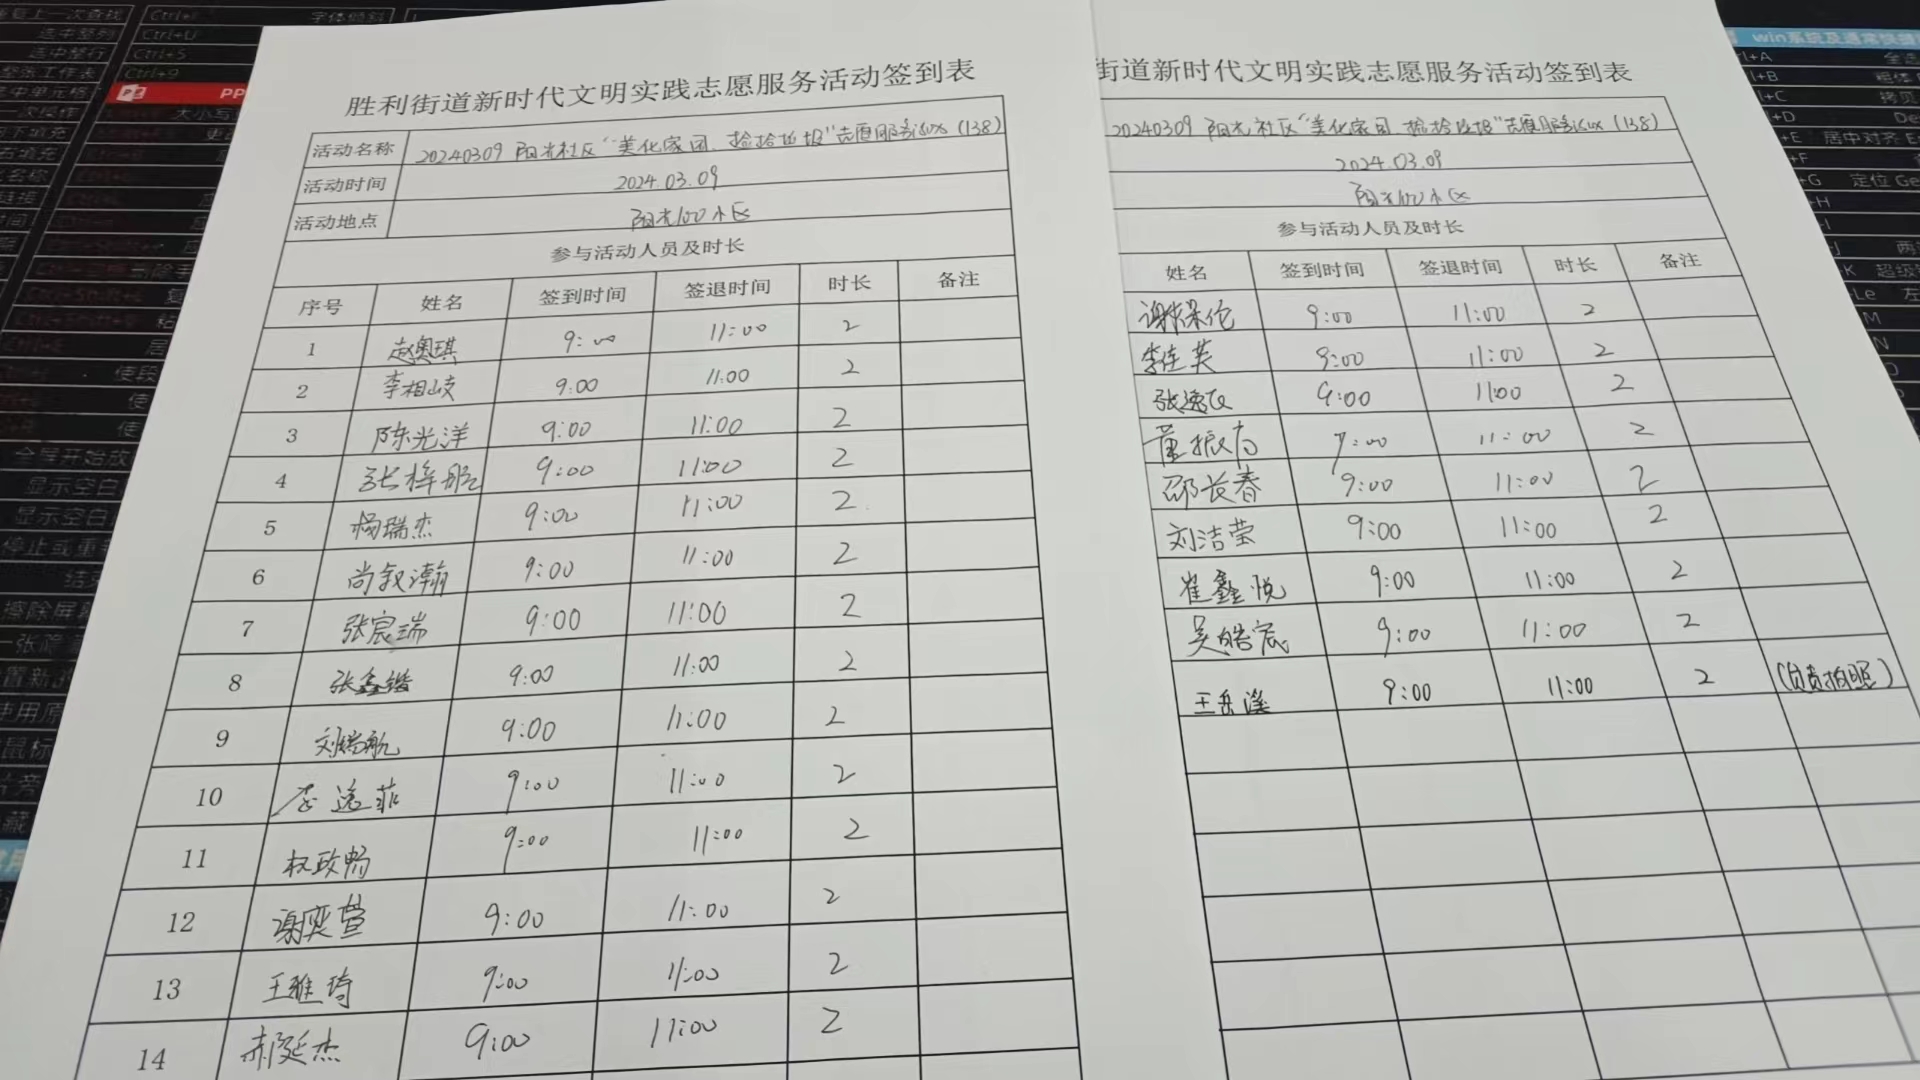 胜利街道新时代文明实践志愿服务活动签到表
活动名称 20240309 阳光社区"美化家园、捡拾垃圾"志愿服务活动 (138)
活动时间 2024.03.09
活动地点 阳光100小区
参与活动人员及时长
序号 姓名 签到时间 签退时间 时长 备注
1 赵奥琪 9:00 11:00 2
2 李相岐 9:00 11:00 2
3 陈光洋 9:00 11:00 2
4 张梓航 9:00 11:00 2
5 杨瑞杰 9:00 11:00 2
6 尚叙瀚 9:00 11:00 2
7 张宸瑞 9:00 11:00 2
8 张鑫锴 9:00 11:00 2
9 刘瑞航 9:00 11:00 2
10 李逸菲 9:00 11:00 2
11 权政畅 9:00 11:00 2
12 谢奕萱 9:00 11:00 2
13 王雅琦 9:00 11:00 2
14 郝廷杰 9:00 11:00 2
街道新时代文明实践志愿服务活动签到表
20240309 阳光社区"美化家园、捡拾垃圾"志愿服务活动 (138)
2024.03.09
阳光100小区
参与活动人员及时长
姓名 签到时间 签退时间 时长 备注
谢保伦 9:00 11:00 2
李佳英 9:00 11:00 2
张逸飞 9:00 11:00 2
董振 9:00 11:00 2
邵长春 9:00 11:00 2
刘洁莹 9:00 11:00 2
崔鑫悦 9:00 11:00 2
吴皓宸 9:00 11:00 2
王岳溪 9:00 11:00 2 (负责拍照)
win系统及通常快捷